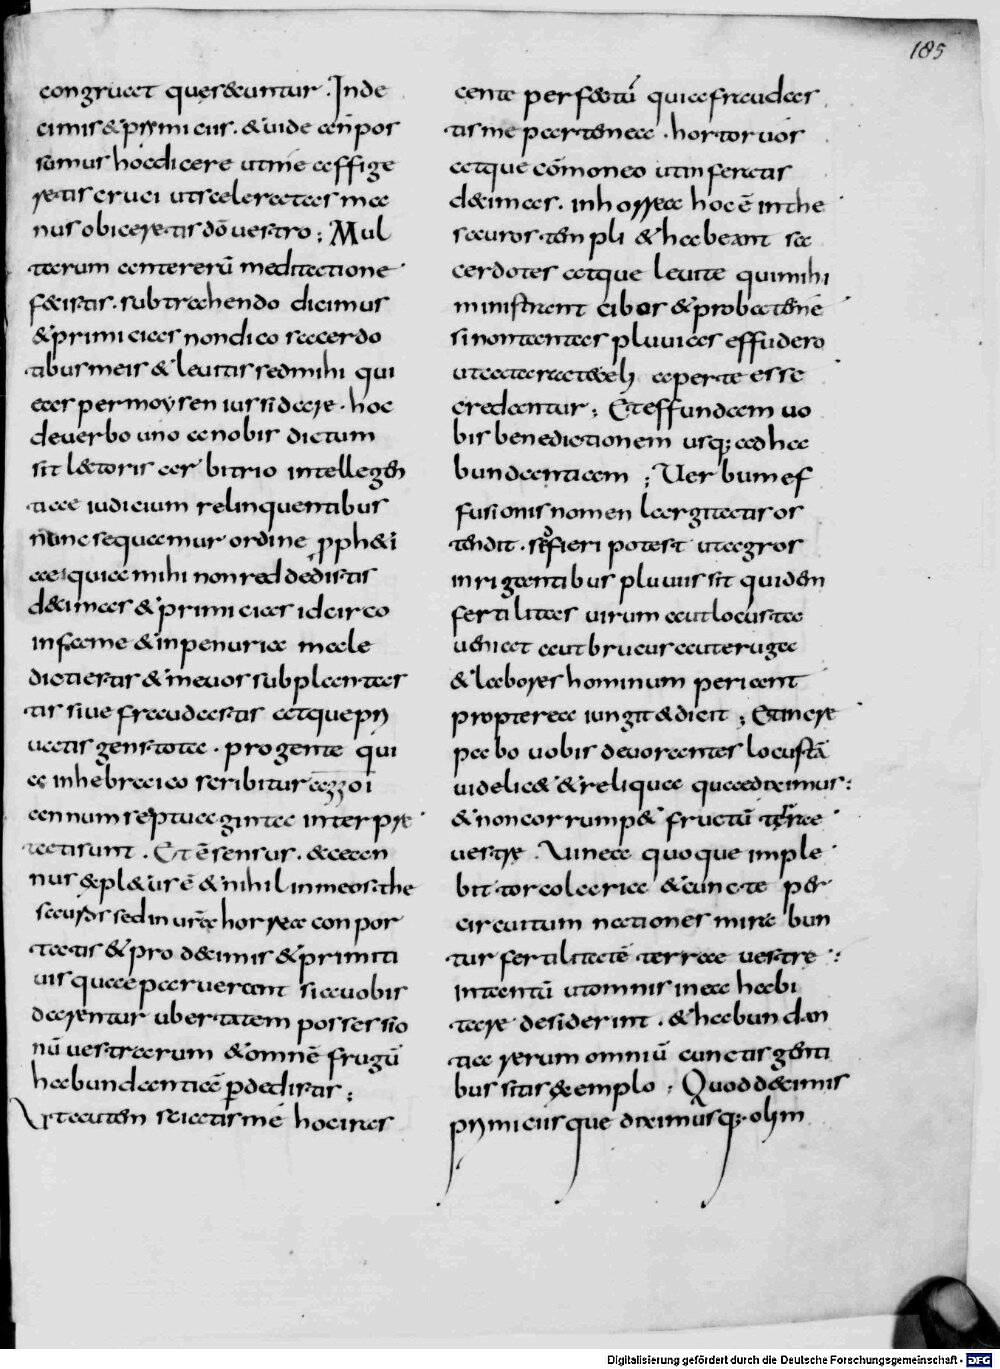 185
congruat quęsecuntur. Inde
cimis & primiciis. & uide an pos
simus hoc dicere ut me affige
retis cruci ut sceleratas ma
nus obiceretis dō uestro; Mul
tarum entererū meditatione
fecistis. subtrahendo dicimus
& primicias non dico sacerdo
tibus meis & leuitis sed mihi qui
eas per moysen iussi dare. hoc
de uerbo uno a nobis dictum
sit lectoris arbitrio intellegen
tiae iudicium relinquentibus
nunc sequamur ordinē proph&i
ae. quia mihi non reddedistis
decimas & primicias idcirco
in fame & in penuria male
dicti estis & me uos subplantas
tis siue fraudastis atque pri
uatis gens tota. pro gente qui
a in hebraico scribitur azzoi
annum septuaginta interpre
tati sunt. Et ē sensus. & ecce an
nus expletus ē & nihil in meos the
sauros sed in urā horrea conpor
tatis & pro decimis & primiti
uis quae paruerant si a uobis
darentur ubertatem possessio
nū uestrarum & omnē frugū
habundantiā perdedistis;
Ut autem sciatis mé hoc iras
cente perfectū quia fraudas
tis me parte mea. hortor uos
atque cōmoneo ut inferatis
decimas. in horrea hoc ē in the
sauros templi & habeant sa
cerdotes atque leuitæ qui mihi
ministrent cibos & probate me
si non tantas pluuias effudero
ut cataractae caeli aperte esse
credantur; Et effundam uo
bis benedictionem usq; ad ha
bundantiam; Uerbum ef
fusionis nomen largitatis os
tendit. sed fieri potest ut agros
inrigantibus pluuiis sit quidem
fertilitas uirum aut locusta
ueniat aut brucus aut eruga
& labores hominum pereant
propterea iungit & dicit; Et incre
pabo uobis deuorantes locustā
uidelic& & reliqua quae diximus:
& non corrump& fructū terrae
uestre. Uinea quoque imple
bit torcolaria & cuncte per
circuitum nationes mirabun
tur fertilitatē terrae uestre:
In tantū ut omnis in ea habi
tare desiderint. & habundan
tia rerum omniū cunctis genti
bus sitis exemplo; Quod decimis
primiciisque diximusq; olim
Digitalisierung gefördert durch die Deutsche Forschungsgemeinschaft - DFG